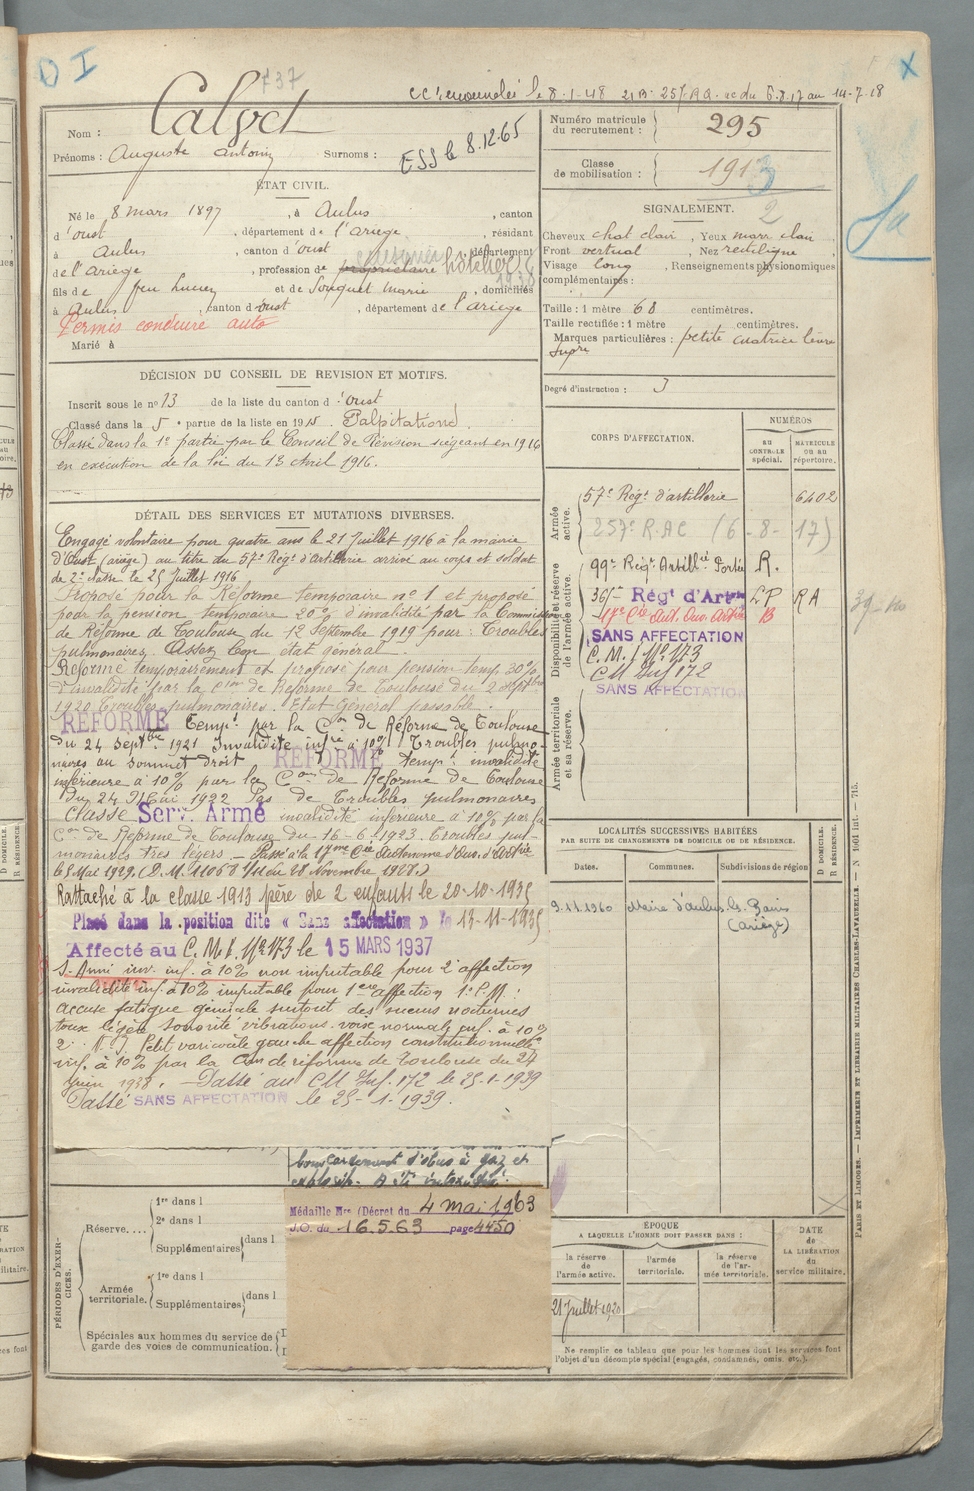 D I
737
CC renouvelée le 8-1-48 21 B 257 RA ac du 6.8.17 au 14-7-18
Nom : Calvet
Prénoms : Auguste Antonin Surnoms :
ESS le 8.12.65
Numéro matricule du recrutement : 295
Classe de mobilisation : 1913
2
ÉTAT CIVIL.
Né le 8 mars 1897, à Aulus, canton
d'oust, département de l'ariege, résidant
à Aulus, canton d'oust, département
de l'ariege, profession de propriétaire hôtelier
1938
fils de feu et de Souquet Marie, domiciliés
à Aulus, canton d'oust, département de l'ariege
Permis conduire auto
Marié à
SIGNALEMENT.
Cheveux chat clair, Yeux marr clair
Front vertical, Nez rectiligne,
Visage long, Renseignements physionomiques
complémentaires :
Taille : 1 mètre 68 centimètres.
Taille rectifiée : 1 mètre centimètres.
Marques particulières : petite cicatrice lèvre
supre
Degré d'instruction : 3
DÉCISION DU CONSEIL DE REVISION ET MOTIFS.
Inscrit sous le no 13 de la liste du canton d'Oust
Classé dans la 5e partie de la liste en 1915. Palpitations.
Classé dans la 1e partie par le Conseil de Révision siégeant en 1916
en exécution de la loi du 13 Avril 1916.
DÉTAIL DES SERVICES ET MUTATIONS DIVERSES.
Engagé volontaire pour quatre ans le 21 Juillet 1916 à la mairie
d'Oust (ariège) au titre du 57e Régt d'Artillerie arrivé au corps et soldat
de 2e classe le 25 Juillet 1916
Proposé pour la Réforme temporaire no 1 et proposé
pour la pension temporaire 20% d'invalidité par la Commission
de Réforme de Toulouse du 12 Septembre 1919 pour : Troubles
pulmonaires, Assez bon état général.
Réformé temporairement et proposé pour pension temp. 30%
d'invalidité par la Con de Réforme de Toulouse du 2 Septbre
1920 Troubles pulmonaires. Etat Général passable.
RÉFORMÉ Tempt par la Con de Réforme de Toulouse
du 24 septbre 1921 Invalidité infre à 10% Troubles pulmo-
naires au sommet droit RÉFORMÉ tempt invalidité
inférieure à 10% par la Con de Réforme de Toulouse
du 24 Mai 1922 Pas de Troubles pulmonaires
classé Serv. Armé invalidité inférieure à 10% par la
Con de Réforme de Toulouse du 16-6-1923. Troubles pul-
monaires très légers. Passé à la 17me Cie Autonome d'Ouv. d'Artie
le 5 Mai 1929. (D.M. 11068 du 28 Novembre 1928.)
Rattaché à la classe 1913 père de 2 enfants le 20-10-1935
Placé dans la position dite « Sans affectation » le 13-11-1935
Affecté au C.M.I. No 173 le 15 MARS 1937
S. Armé inv. inf. à 10% non imputable pour 2e affection
invalidité inf. à 10% imputable pour 1ere affection 1e P.M. :
accuse fatigue générale surtout des sueurs nocturnes
toux légère sonorité vibrations voix normale inf. à 10%
2° Petit varicocèle gauche affection constitutionnelle
inf. à 10% par la Con de réforme de Toulouse du 24
Juin 1938. Passé au CM Inf. 172 le 25-1-1939
Passé SANS AFFECTATION le 25-1-1939.
bombardement d'obus à gaz et
explosifs. A été intoxiqué.
Médaille Mre (Décret du 4 mai 1963
J.O. du 16.5.63 page 4450
CORPS D'AFFECTATION.
NUMÉROS
AU CONTRÔLE spécial.
MATRICULE OU AU répertoire.
Armée active.
57e Régt d'artillerie 6402
257e R.A.C (6-8-17)
Disponibilité et réserve de l'armée active.
99e Régt Artillie Portée R.
36e Régt d'Artie LP RA
17e Cie Aut. Ouv. Artie B
SANS AFFECTATION
C.M.I No 173
CM Inf 172
SANS AFFECTATION
Armée territoriale et sa réserve.
LOCALITÉS SUCCESSIVES HABITÉES
PAR SUITE DE CHANGEMENTS DE DOMICILE OU DE RÉSIDENCE.
Dates. Communes. Subdivisions de région D DOMICILE. R RÉSIDENCE.
9.11.1960 Mairie d'aulus les Bains
(ariège)
PÉRIODES D'EXERCICES.
Réserve.... 1re dans l
2e dans l
Supplémentaires dans l
Armée territoriale. 1re dans l
Supplémentaires dans l
Spéciales aux hommes du service de
garde des voies de communication.
ÉPOQUE
A LAQUELLE L'HOMME DOIT PASSER DANS :
la réserve de l'armée active. l'armée territoriale. la réserve de l'armée territoriale.
DATE de LA LIBÉRATION du service militaire.
21 Juillet 1920
Ne remplir ce tableau que pour les hommes dont les services font
l'objet d'un décompte spécial (engagés, condamnés, omis, etc.).
PARIS ET LIMOGES. — IMPRIMERIE ET LIBRAIRIE MILITAIRES CHARLES-LAVAUZELLE. — N° 1601 int. — 715.